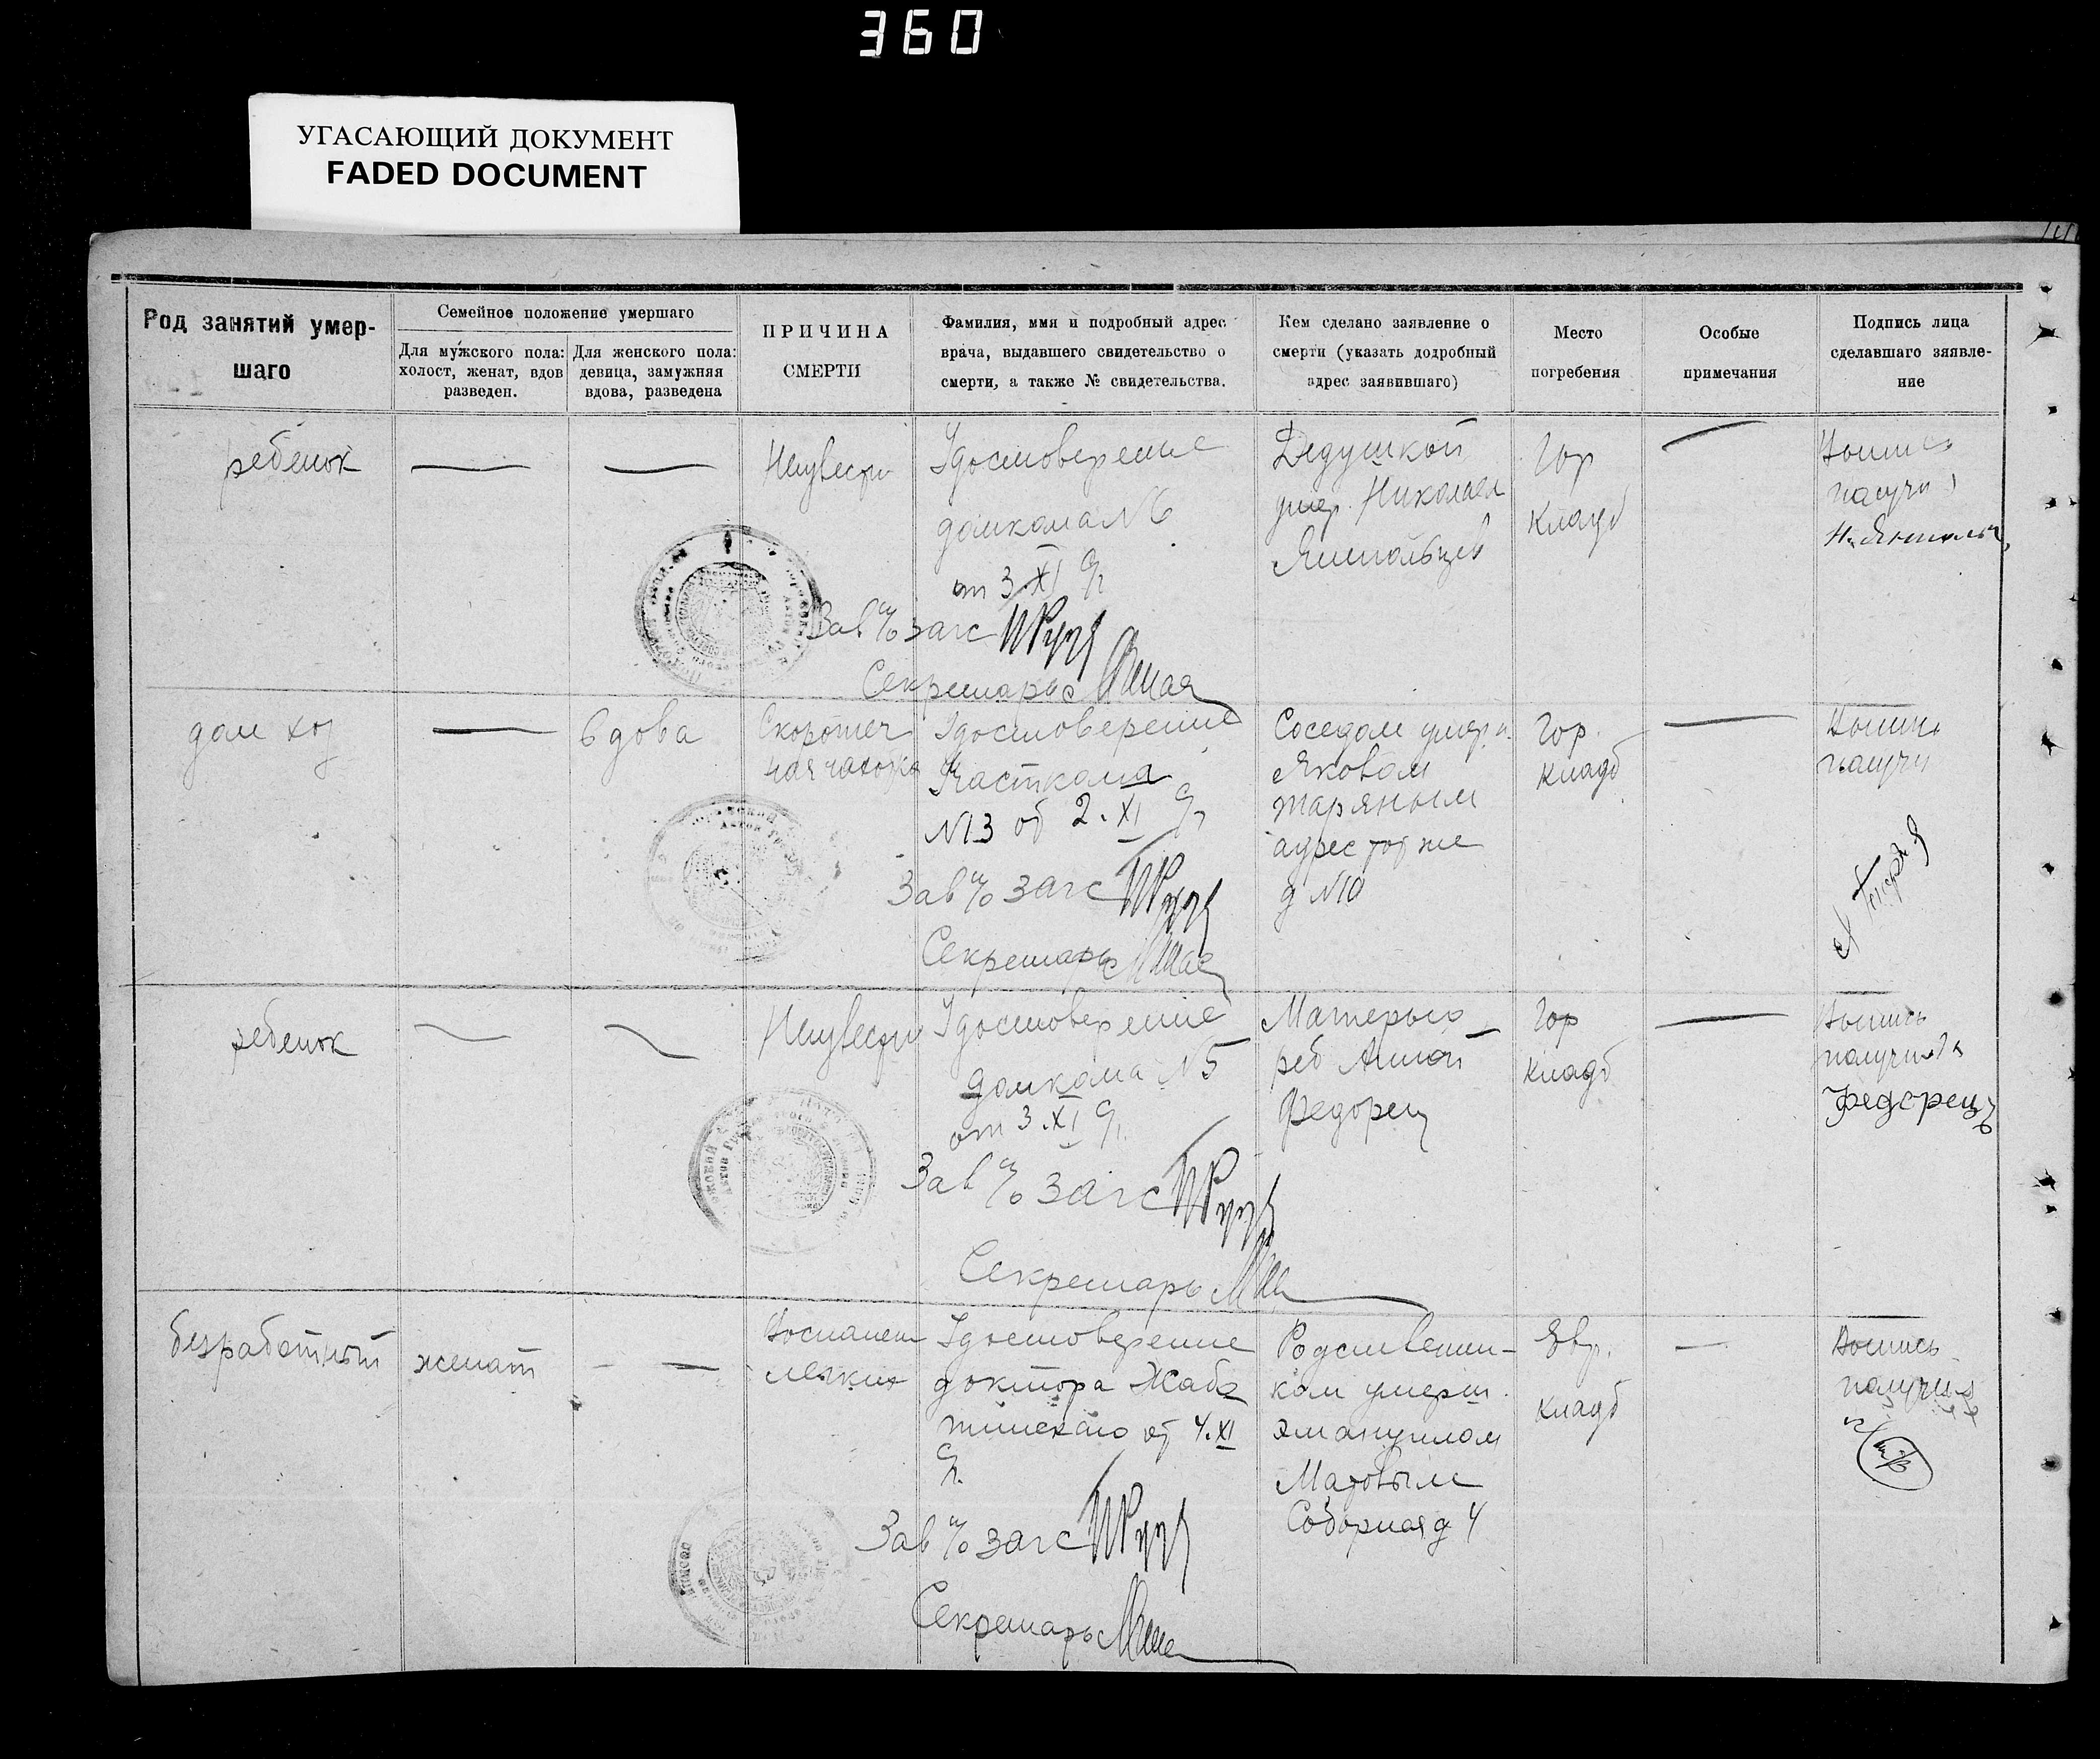 360
УГАСАЮЩИЙ ДОКУМЕНТ
FADED DOCUMENT
Род занятий умер-
шаго
Семейное положение умершаго
Для мужского пола:
холост, женат, вдов
разведен.
Для женского пола:
девица, замужняя
вдова, разведена
ПРИЧИНА
СМЕРТИ
Фамилия, ммя и подробный адрес
врача, выдавшего свидетельство о
смерти, а также № свидетельства.
Кем сделано заявление о
смерти (указать додробный
адрес заявившаго)
Место
погребения
Особые
примечания
Подпись лица
сделавшаго зяявле-
ние
ребенок
—
—
Неизвестн
Удостоверение
домкома N 6
от 3.XI
Зав п/о загс
Секретарь
Дедушкой
умер. Николаем
Гор
кладб
—
дом хоз
—
вдова
Скоротеч
ная чахотка
Удостоверение
Участкома
N13 от 2.XI
Зав п/о загс
Секретарь
Соседом умерш.
Яковом
адрес тот же
д N10
Гор.
кладб
—
ребенок
—
—
Неизвестн
Удостоверение
домкома N5
от 3.XI
Зав п/о загс
Секретарь
Матерью
реб Анной
Федорец
Гор
кладб
—
получила
Федорец
безработный
женат
— —
Воспален
легких
Удостоверение
доктора Жабо
тинскаго от 4.XI
Зав п/о загс
Секретарь
Родственни-
ком умерш.
Эмануилом
Соборная д 4
Евр.
кладб
—